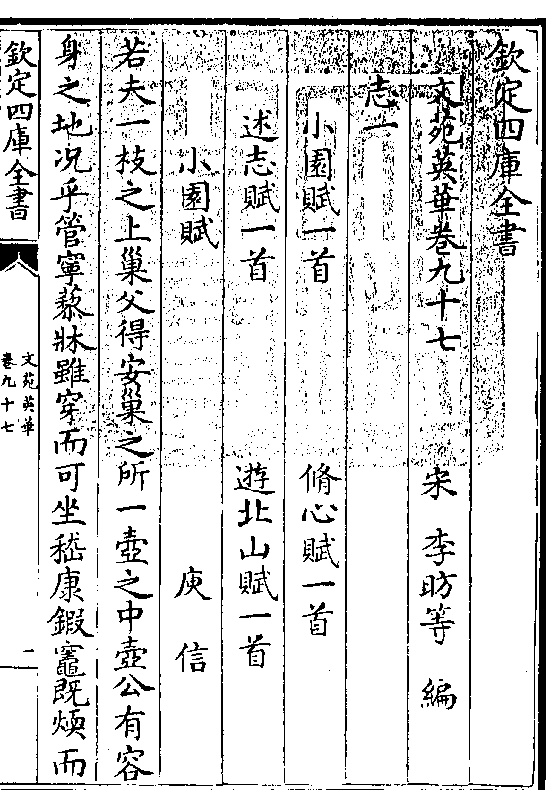 欽定四庫全書
文苑英華卷九十七
宋 李昉等 編
志一
小園賦一首 脩心賦一首
述志賦一首 遊北山賦一首
小園賦 庾信
若夫一枝之上巢父得安巢之所一壺之中壺公有容
身之地况乎管寧藜牀雖穿而可坐嵇康鍜竈既煗而
欽定四庫全書
文苑英華
卷九十七
一